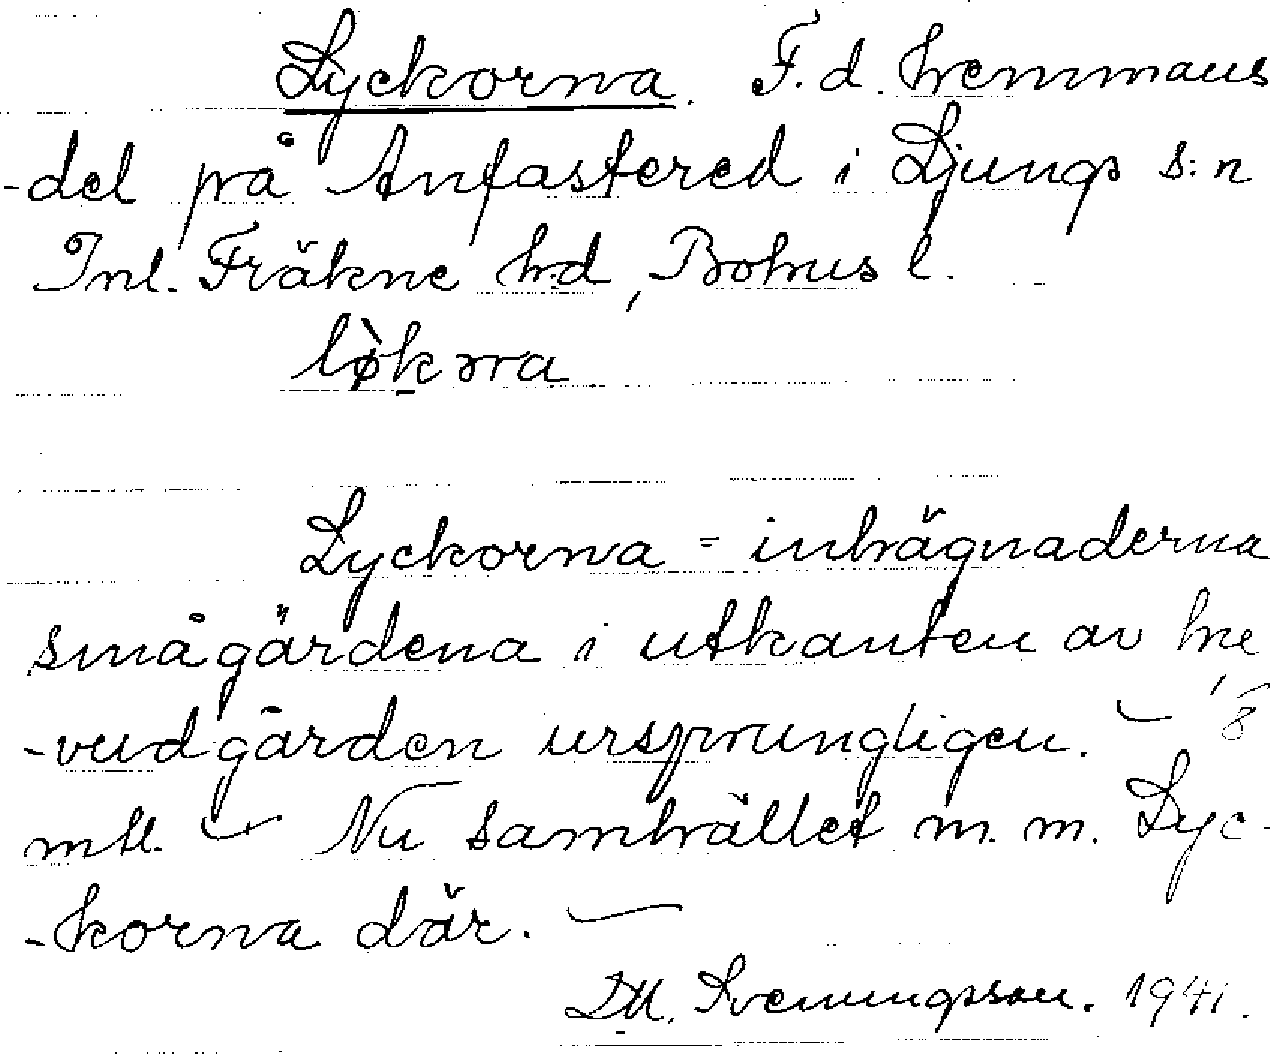 Lyckorna. F.d. hemmans
-del på Anfastered i Ljungs s:n
Inl. Fräkne hd, Bohus l.
lø̀kɔrna
Lyckorna = inhägnaderna
smågärdena i utkanten av hu
-vudgården ursprungligen. —
mtl. — Nu samhället m.m. Lyc-
-korna där. —
D.M. Svenungsson. 1941.